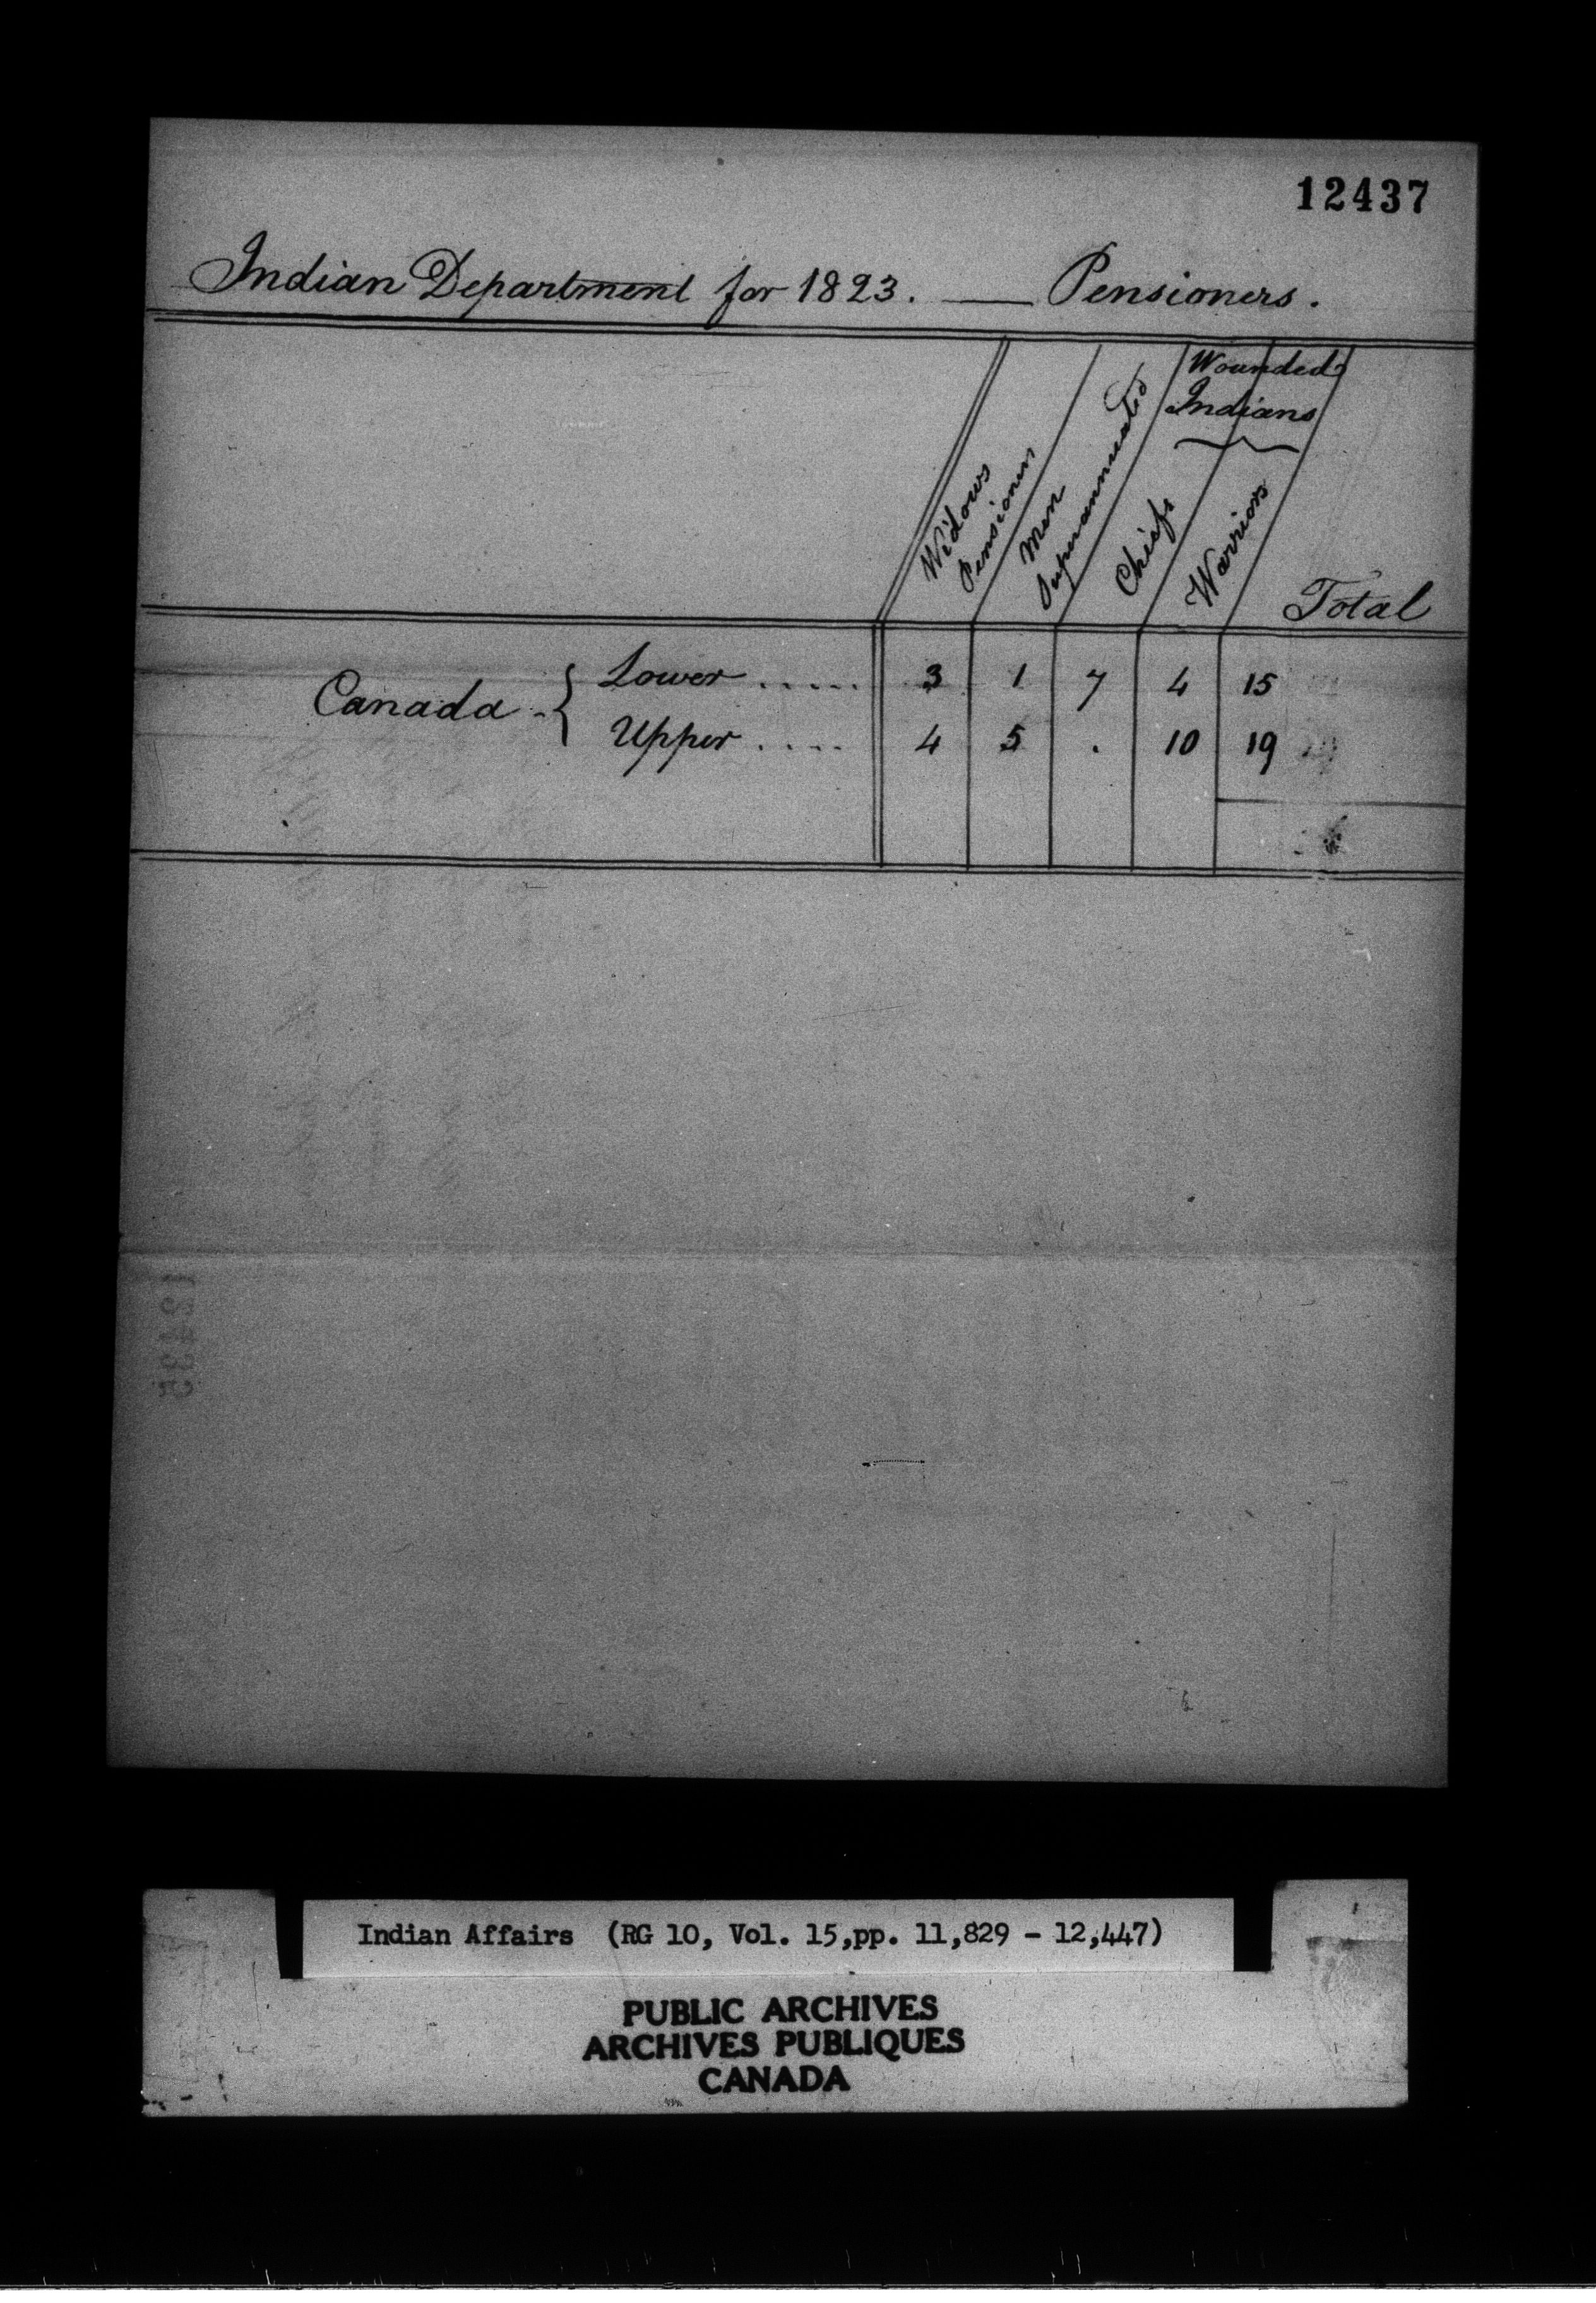 12437
Indian Department for 1823. — Pensioners.
Widows Pensioners
Men Superannuated
Wounded Indians
Chiefs
Warriors
Total
Canada - { Lower ..... 3 1 7 4 15
Upper .... 4 5 . 10 19
12435
Indian Affairs (RG 10, Vol. 15,pp. 11,829 - 12,447)
PUBLIC ARCHIVES
ARCHIVES PUBLIQUES
CANADA